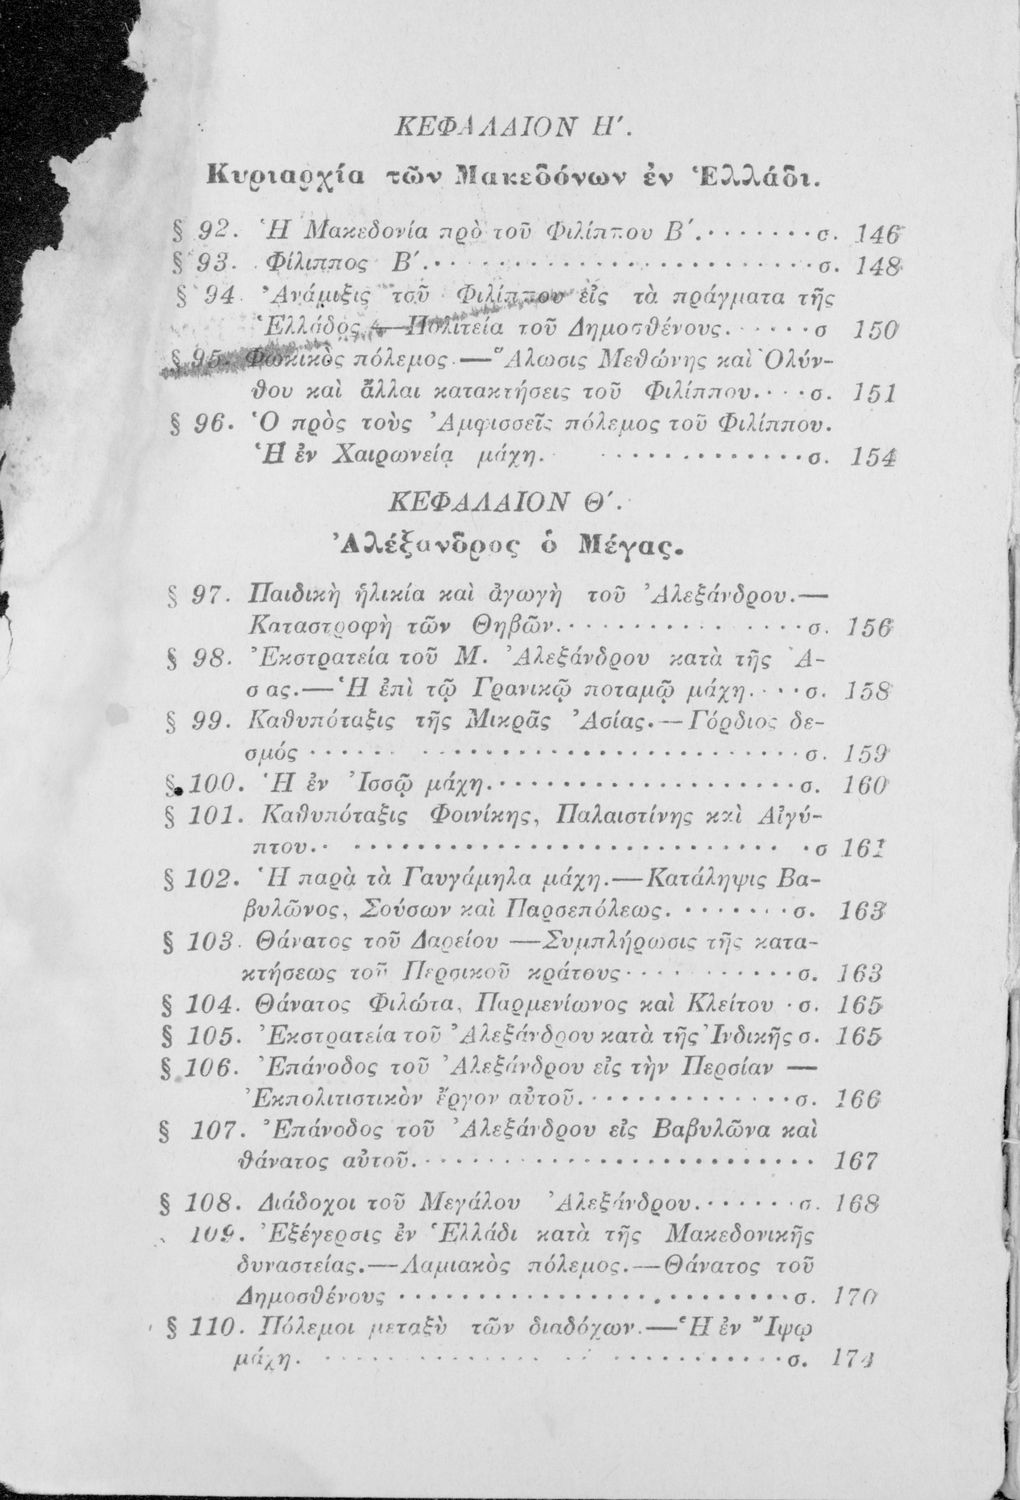 ΚΕΦΑΛΑΙΟΝ Η′.
Κυριαρχία τῶν Μακεδόνων ἐν Ἑλλάδι.
§ 92. Ἡ Μακεδονία πρὸ τοῦ Φιλίππου Β′. σ. 146
§ 93. Φίλιππος Β′. σ. 148
§ 94 Ἀνάμιξις τοῦ Φιλίππου εἰς τὰ πράγματα τῆς
Ἑλλάδος.—Πολιτεία τοῦ Δημοσθένους. σ 150
§ 95. Φωκικὸς πόλεμος.—Ἅλωσις Μεθώνης καὶ Ὀλύν-
θου καὶ ἄλλαι κατακτήσεις τοῦ Φιλίππου. σ. 151
§ 96. Ὁ πρὸς τοὺς Ἀμφισσεῖς πόλεμος τοῦ Φιλίππου.
Ἡ ἐν Χαιρωνείᾳ μάχη. σ. 154
ΚΕΦΑΛΑΙΟΝ Θ′.
Ἀλέξανδρος ὁ Μέγας.
§ 97. Παιδικὴ ἡλικία καὶ ἀγωγὴ τοῦ Ἀλεξάνδρου.—
Καταστροφὴ τῶν Θηβῶν. σ. 156
§ 98. Ἐκστρατεία τοῦ Μ. Ἀλεξάνδρου κατὰ τῆς Ἀ-
σ ας.—Ἡ ἐπὶ τῷ Γρανικῷ ποταμῷ μάχη. σ. 158
§ 99. Καθυπόταξις τῆς Μικρᾶς Ἀσίας.—Γόρδιος δε-
σμός σ. 159
§ 100. Ἡ ἐν Ἰσσῷ μάχη. σ. 160
§ 101. Καθυπόταξις Φοινίκης, Παλαιστίνης καὶ Αἰγύ-
πτου. σ 161
§ 102. Ἡ παρὰ τὰ Γαυγάμηλα μάχη.—Κατάληψις Βα-
βυλῶνος, Σούσων καὶ Παρσεπόλεως. σ. 163
§ 103. Θάνατος τοῦ Δαρείου —Συμπλήρωσις τῆς κατα-
κτήσεως τοῦ Περσικοῦ κράτους σ. 163
§ 104. Θάνατος Φιλώτα, Παρμενίωνος καὶ Κλείτου σ. 165
§ 105. Ἐκστρατεία τοῦ Ἀλεξάνδρου κατὰ τῆς Ἰνδικῆς σ. 165
§ 106. Ἐπάνοδος τοῦ Ἀλεξάνδρου εἰς τὴν Περσίαν —
Ἐκπολιτιστικὸν ἔργον αὐτοῦ. σ. 166
§ 107. Ἐπάνοδος τοῦ Ἀλεξάνδρου εἰς Βαβυλῶνα καὶ
θάνατος αὐτοῦ. 167
§ 108. Διάδοχοι τοῦ Μεγάλου Ἀλεξάνδρου. σ. 168
109. Ἐξέγερσις ἐν Ἑλλάδι κατὰ τῆς Μακεδονικῆς
δυναστείας.—Λαμιακὸς πόλεμος.—Θάνατος τοῦ
Δημοσθένους σ. 170
§ 110. Πόλεμοι μεταξὺ τῶν διαδόχων.—Ἡ ἐν Ἴψῳ
μάχη. σ. 174